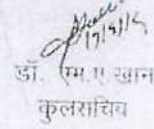 17/9/15
डॉ. एम.ए.खान
कुलसचिव